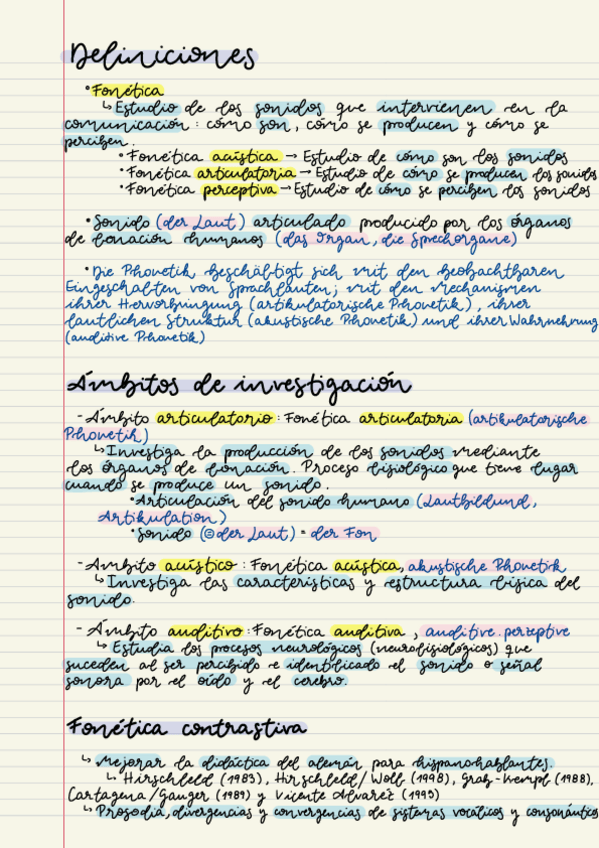 Definiciones
•Fonética
↳Estudio de los sonidos que intervienen en la
comunicación: cómo son, cómo se producen y cómo se
perciben.
•Fonética acústica → Estudio de cómo son los sonidos
•Fonética articulatoria → Estudio de cómo se producen los sonidos
•Fonética perceptiva → Estudio de cómo se perciben los sonidos
•Sonido (der Laut) articulado producido por los órganos
de fonación humanos (das Organ, die Sprechorgane)
•Die Phonetik beschäftigt sich mit den beobachtbaren
Eingeschalten von Sprachlauten; mit den Mechanismen
ihrer Hervorbringung (artikulatorische Phonetik), ihrer
lautlichen Struktur (akustische Phonetik) und ihrer Wahrnehmung
(auditive Phonetik)
Ámbitos de investigación
-Ámbito articulatorio: Fonética articulatoria (artikulatorische
Phonetik)
↳Investiga la producción de los sonidos mediante
los órganos de fonación. Proceso fisiológico que tiene lugar
cuando se produce un sonido.
•Articulación del sonido humano (Lautbildund,
Artikulation)
•Sonido (der Laut) = der Fon
-Ámbito acústico: Fonética acústica, akustische Phonetik
↳Investiga las características y estructura física del
sonido.
- Ámbito auditivo: Fonética auditiva, auditive.perzeptive
↳Estudia los procesos neurológicos (neurofisiológicos) que
suceden al ser percibido e identificado el sonido o señal
sonora por el oído y el cerebro.
Fonética contrastiva
↳Mejorar la didáctica del alemán para hispanohablantes.
↳Hirschfeld (1983), Hirschfeld/Wolf (1998), Grab-Kempf (1988),
Cartagena/Gauger (1989) y Vicente Álvarez (1995)
↳Prosodia, divergencias y convergencias de sistemas vocálicos y consonánticos